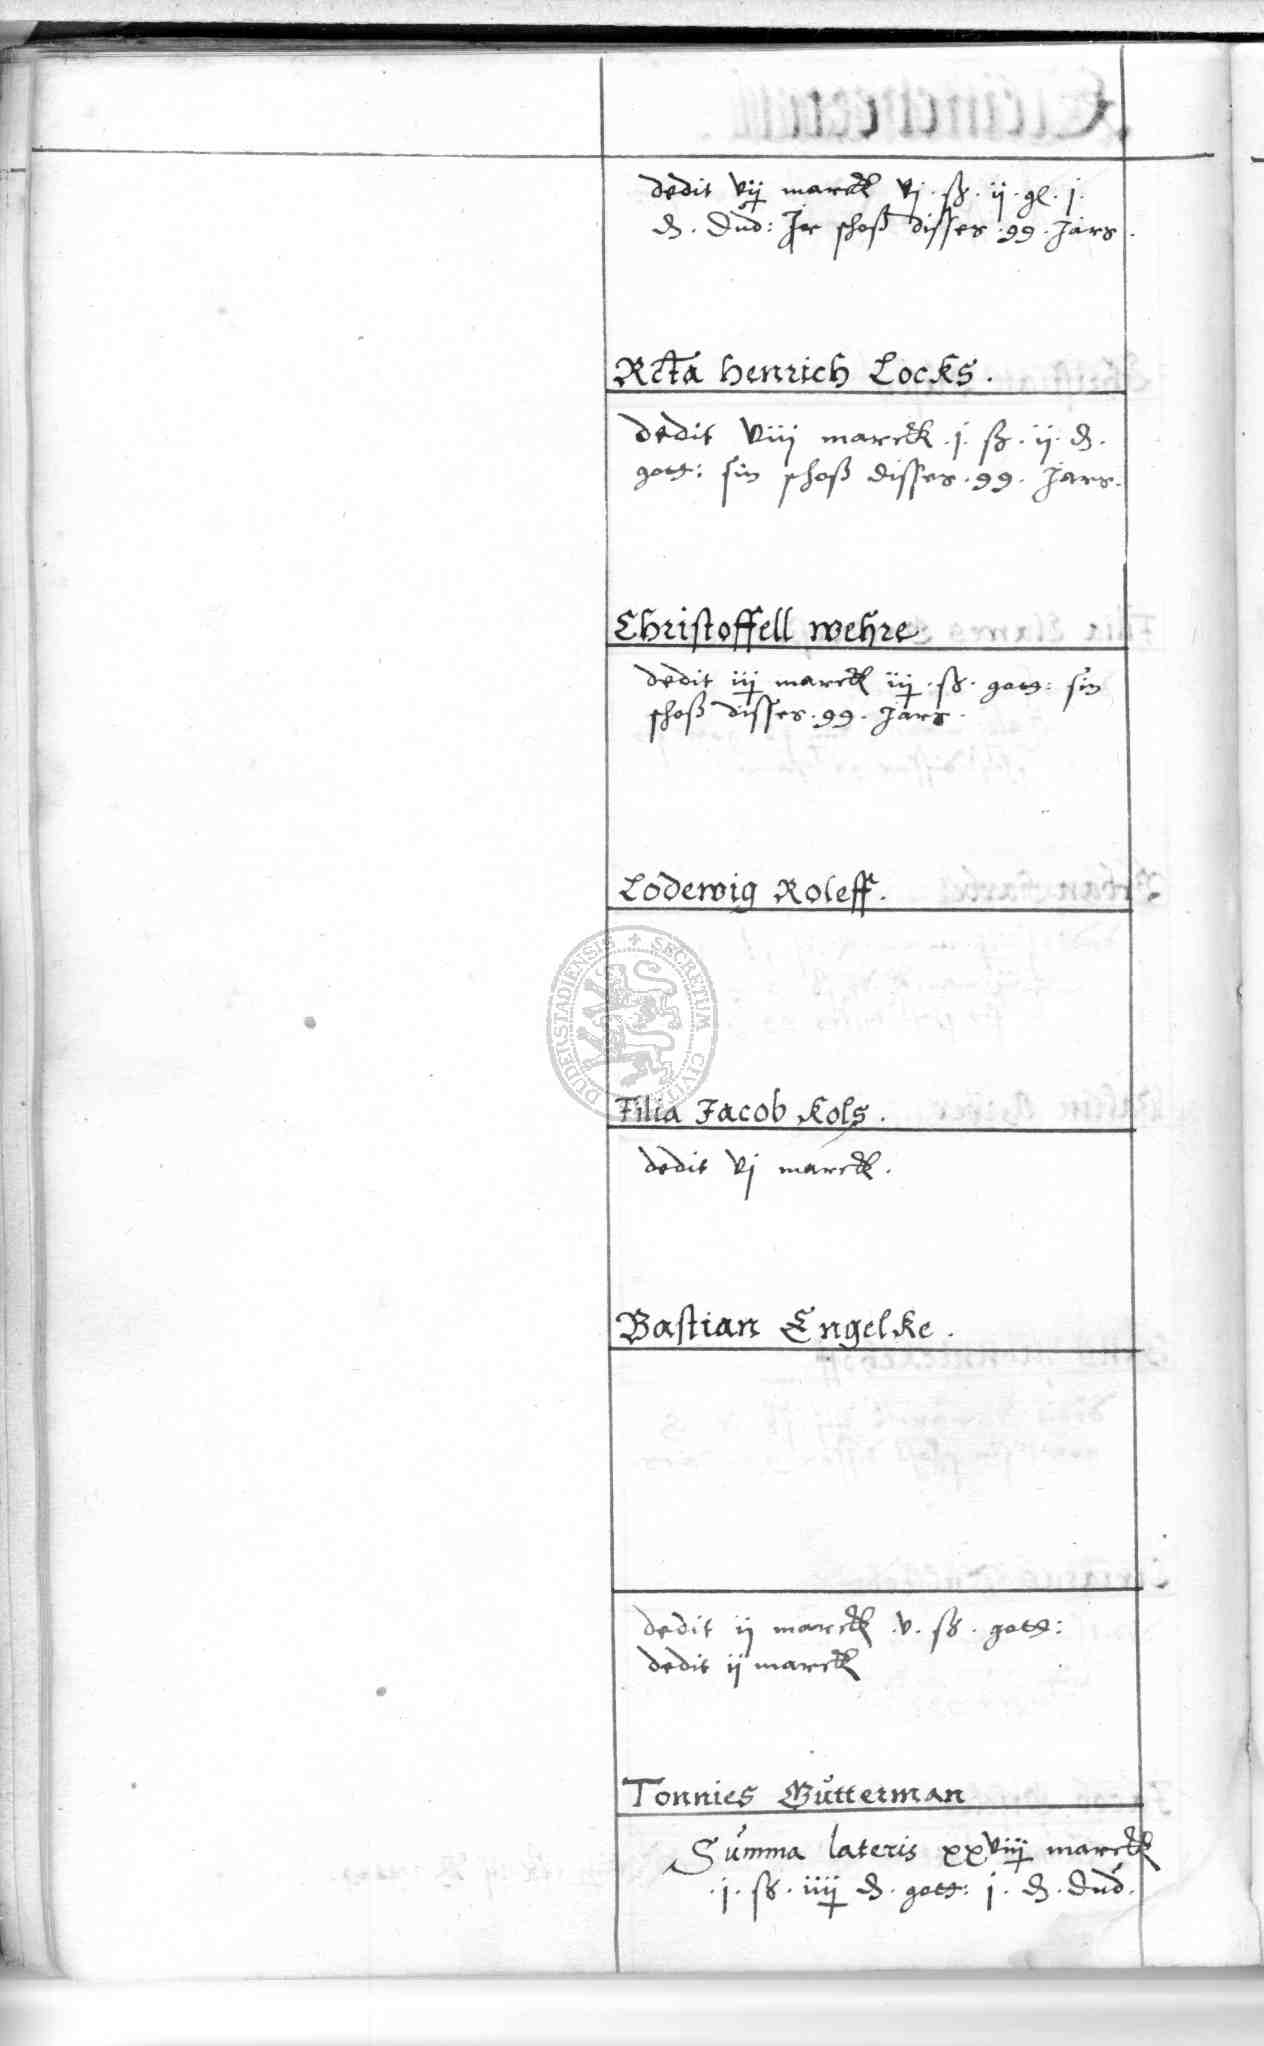 dedit vij marck vj. ß. ij. gl. j.
₰. Dud: Jr schoß disses. 99. Jars.
Rcta Henrich Locks.
dedit viij marck. j. ß. ij. ₰.
gott: sin schoß disses. 99. Jars.
Christoffell Wehre
dedit iij marck iij. ß. gott: sin
schoß disses. 99. Jars.
Lodewig Roleff.
DUDERSTADIENSIS + SECRETUM CIVITATIS
Filia Jacob Kols.
dedit vj marck.
Bastian Engelke.
dedit ij marck. v. ß. gott:
dedit ij marck
Tonnies Gutterman
Summa lateris xxviiij marck
. j. ß. iiij ₰. gott: j. ₰. Dud.